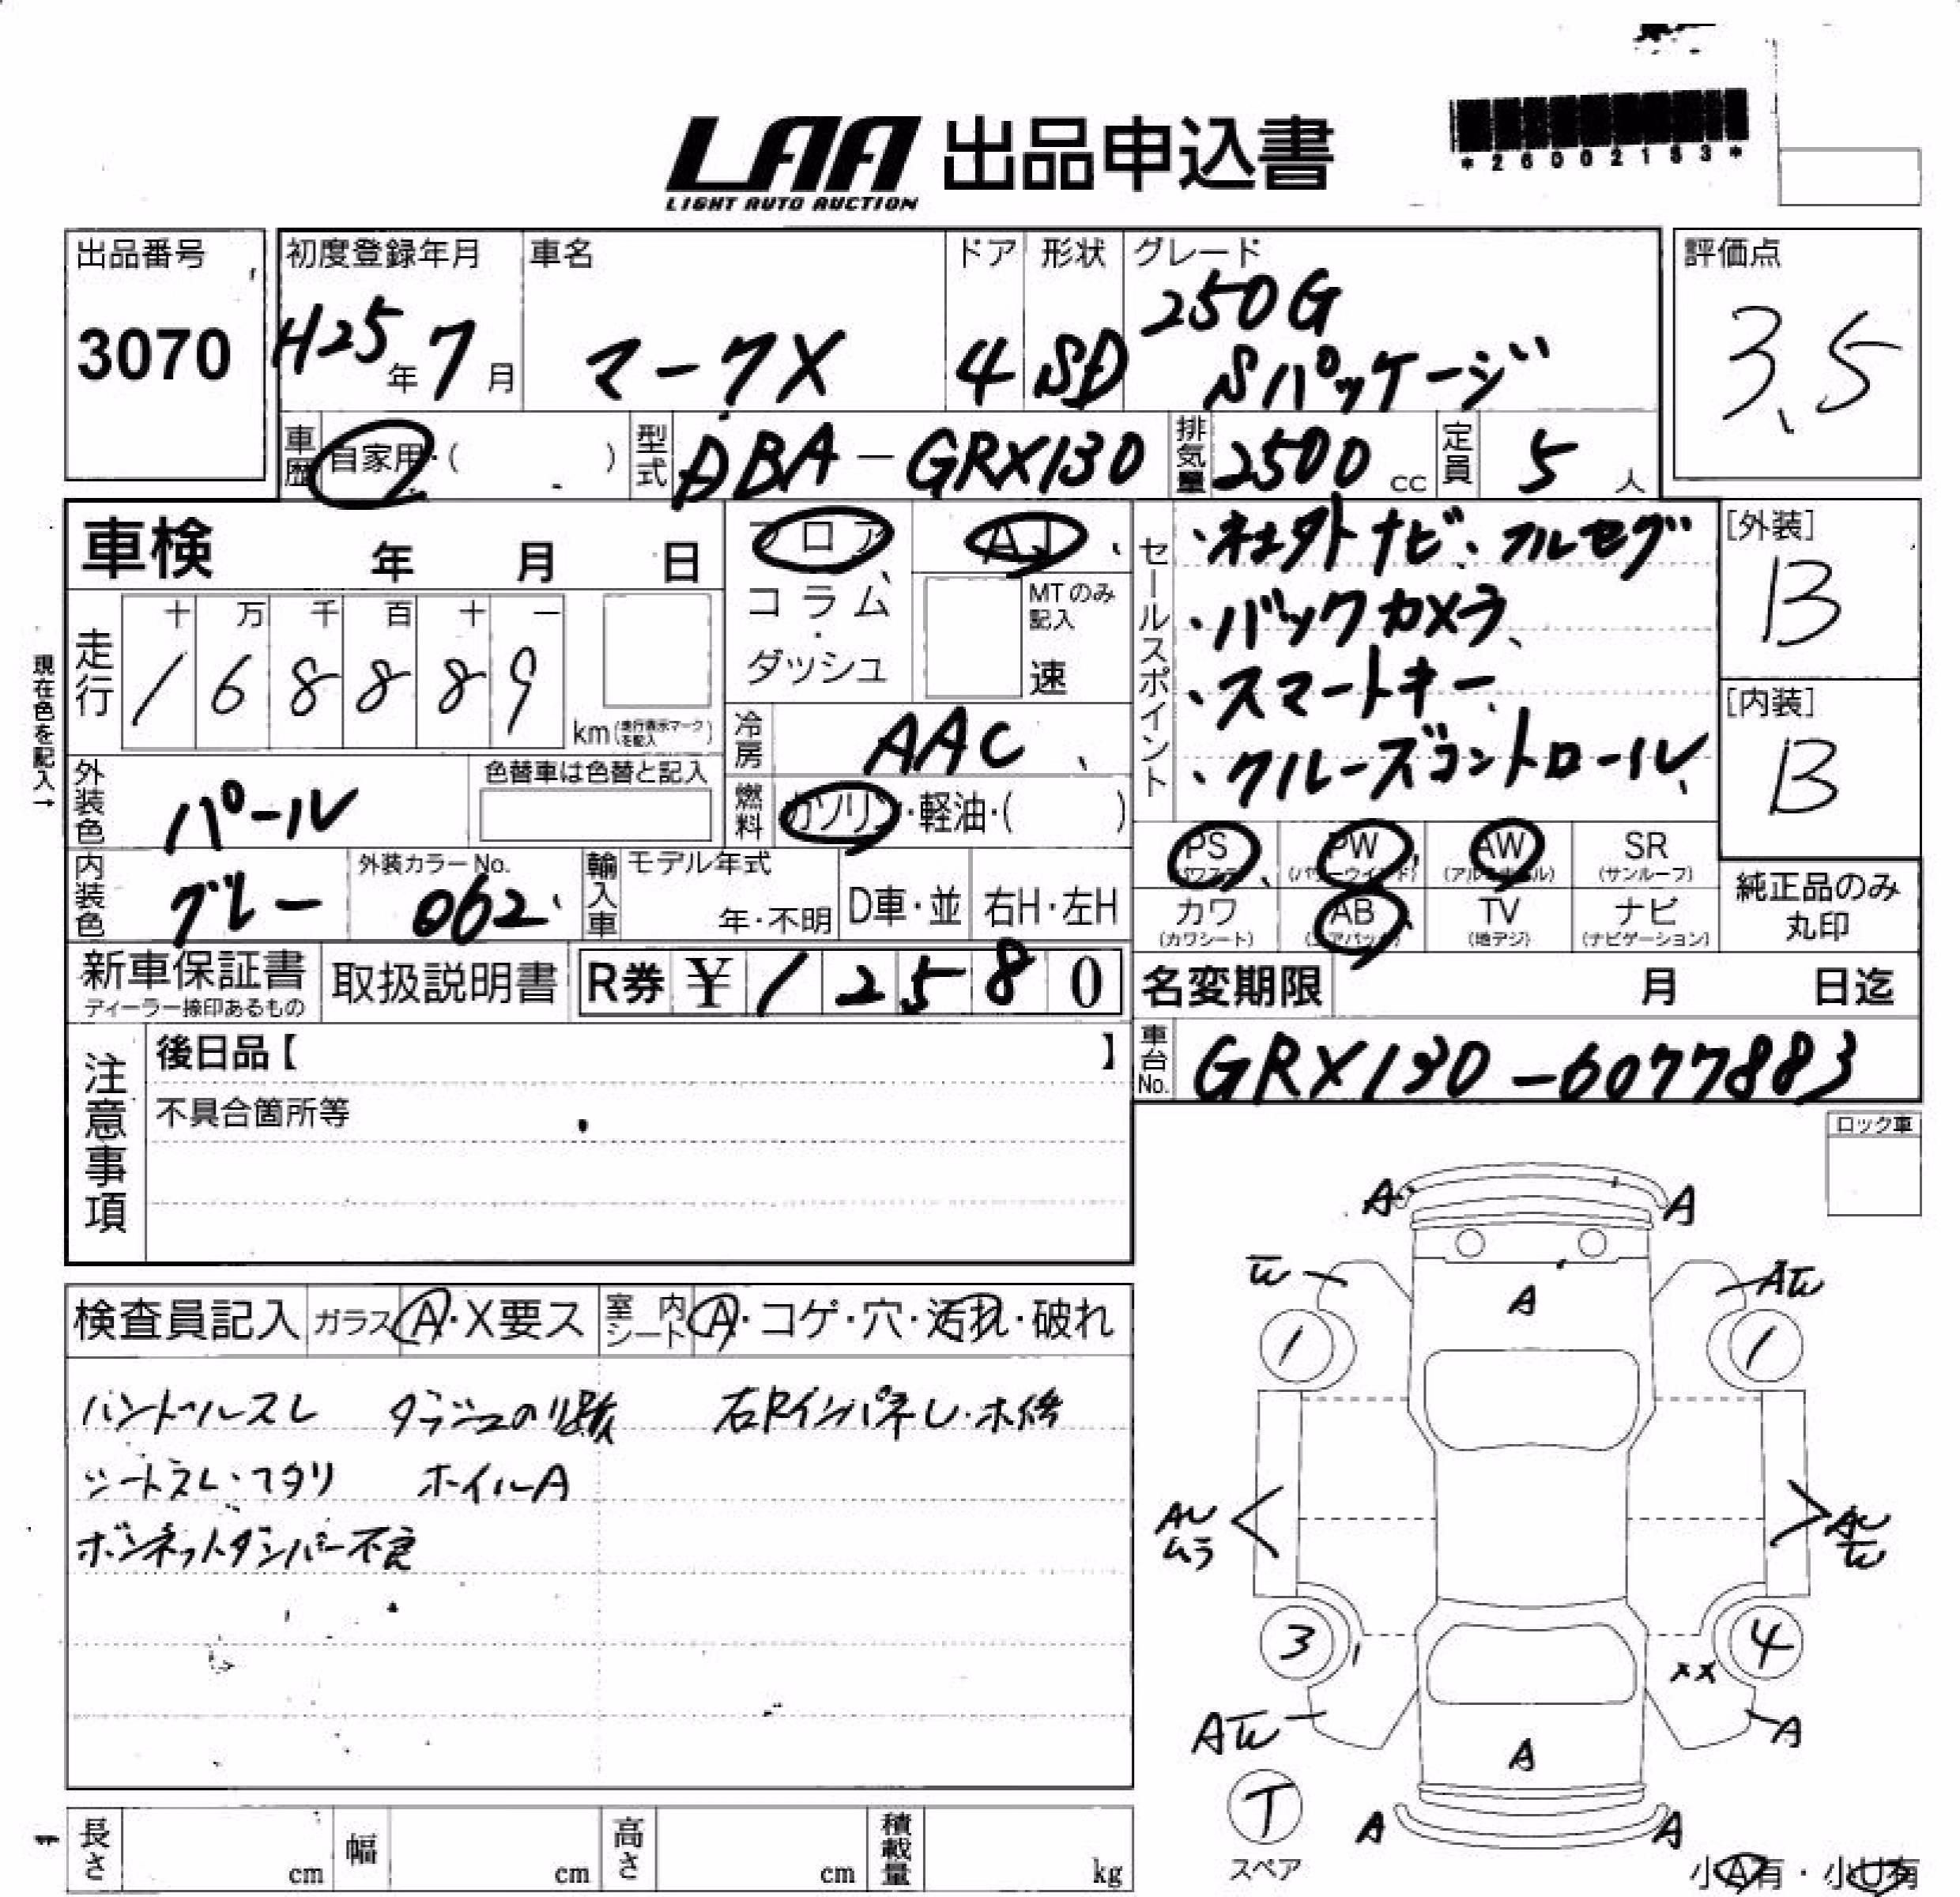 LAA 出品申込書
LIGHT AUTO AUCTION
*26002183*
出品番号
3070
初度登録年月
H25年7月
車名
マークX
ドア
4
形状
SD
グレード
250G
Sパッケージ
評価点
3.5
車歴
自家用・( )
型式
DBA-GRX130
排気量
2500cc
定員
5人
車検 年 月 日
フロア
コラム
・
ダッシュ
AT
MTのみ記入
速
セールスポイント
・社外ナビ、フルセグ
・バックカメラ、
・スマートキー、
・クルーズコントロール、
[外装]
B
[内装]
B
現在色を記入→
走行
十 万 千 百 十 一
1 6 8 8 8 9
km(走行表示マークを記入)
冷房
AAC
外装色
パール
色替車は色替と記入
燃料
ガソリン・軽油・( )
PS
(パワステ)
PW
(パワーウインド)
AW
(アルミホイル)
SR
(サンルーフ)
内装色
グレー
外装カラーNo.
062
輸入車
モデル年式
年・不明
D車・並
右H・左H
カワ
(カワシート)
AB
(エアバック)
TV
(地デジ)
ナビ
(ナビゲーション)
純正品のみ
丸印
新車保証書
ディーラー捺印あるもの
取扱説明書
R券 ¥12580
名変期限 月 日迄
注意事項
後日品【 】
不具合箇所等
車台No.
GRX130-6077883
ロック車
検査員記入
ガラス
A・X要ス
室内シート
A・コゲ・穴・汚れ・破れ
ハンドルスレ ダッシュのり跡 右Rインパネし・ホ修
シートスレ・ヘタリ ホイルA
ボンネットダンパー不良
A A
W AW
A
1 1
AU
ムラ
AU
W
3 4
XX
AW A
A
T
スペア
A A
小A有・小U有
長さ cm
幅 cm
高さ cm
積載量 kg